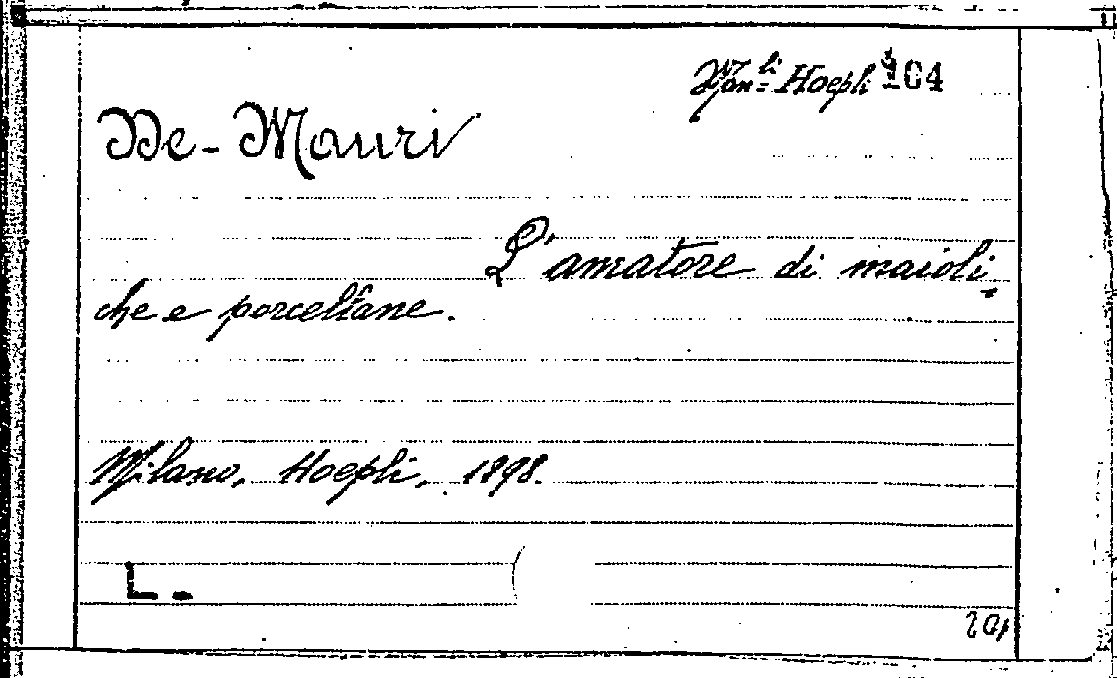 Man.li Hoepli 104
De-Mauri
L'amatore di maioli-
che e porcellane.
Milano, Hoepli, 1898.
L.-
201